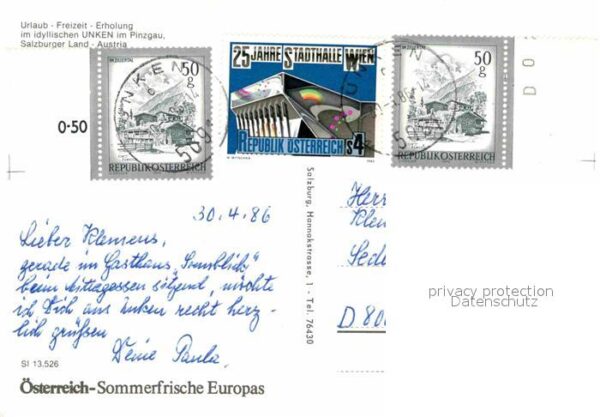 Urlaub - Freizeit - Erholung
im idyllischen UNKEN im Pinzgau,
Salzburger Land - Austria
IM ZILLERTAL
50 g
REPUBLIK ÖSTERREICH
25 JAHRE STADTHALLE WIEN
REPUBLIK ÖSTERREICH S4
IM ZILLERTAL
50 g
REPUBLIK ÖSTERREICH
UNKEN
5091
UNKEN
5091
0·50
D O
30.4.86
Lieber Klemens,
gerade im Gasthaus „Sonnblick"
beim Mittagessen sitzend, möchte
ich Dich aus Unken recht herz-
lich grüßen
Deine Paula.
Salzburg, Hannakstrasse, 1 - Tel. 76430
Herr
Klem
D 80
privacy protection
Datenschutz
SI 13.526
Österreich-Sommerfrische Europas